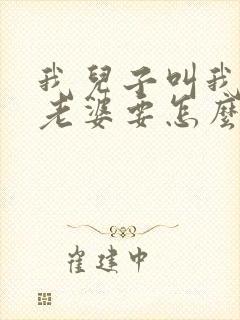 我兒子叫我
老婆要怎麼
崔建中